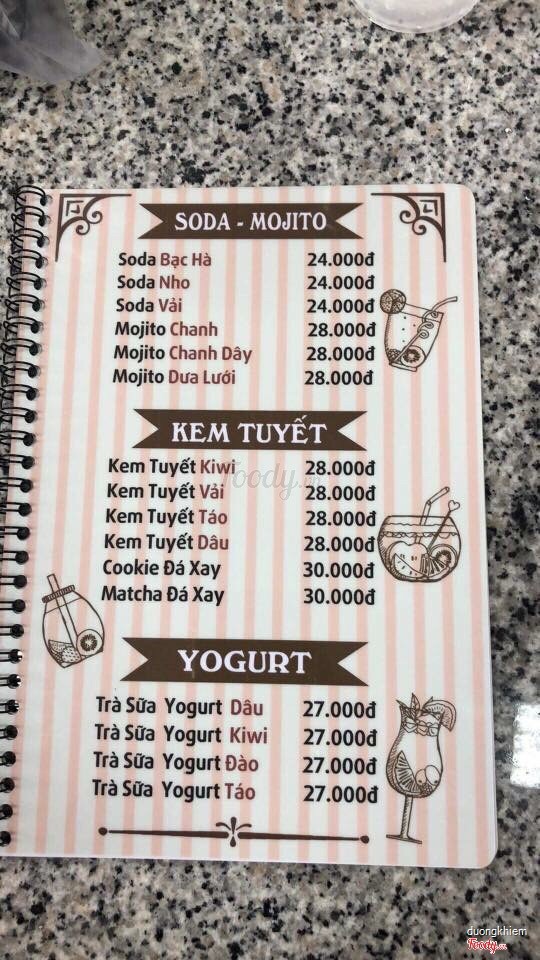 SODA - MOJITO
Soda Bạc Hà 24.000đ
Soda Nho 24.000đ
Soda Vải 24.000đ
Mojito Chanh 28.000đ
Mojito Chanh Dây 28.000đ
Mojito Dưa Lưới 28.000đ
KEM TUYẾT
Kem Tuyết Kiwi 28.000đ
Kem Tuyết Vải 28.000đ
Kem Tuyết Táo 28.000đ
Kem Tuyết Dâu 28.000đ
Cookie Đá Xay 30.000đ
Matcha Đá Xay 30.000đ
YOGURT
Trà Sữa Yogurt Dâu 27.000đ
Trà Sữa Yogurt Kiwi 27.000đ
Trà Sữa Yogurt Đào 27.000đ
Trà Sữa Yogurt Táo 27.000đ
Foody.vn
duongkhiem
Foody.vn